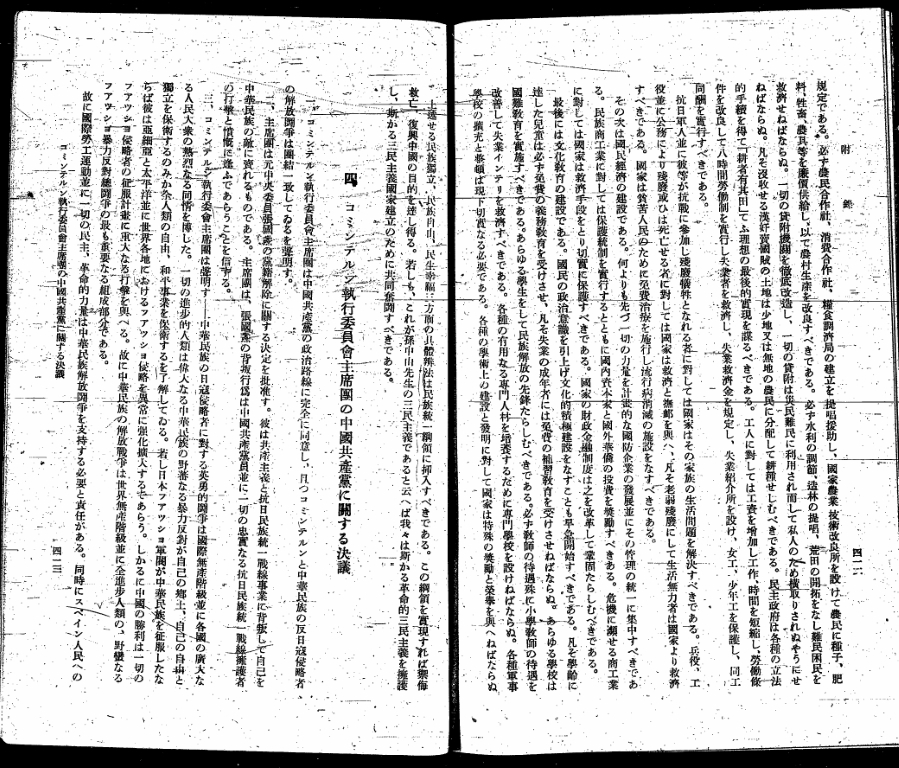 附錄
四二二
規定である。必ず農民合作社、消費合作社、糧食調濟局の建立を提唱援助し、國家農業技術改良所を設けて農民に種子、肥
料、牲畜、農具等を廉價供給し以て農村生產を改良すべきである。必ず水利の調節、造林の提唱、荒田の開拓をなし難民困民を
救濟せねばならぬ。一切の貸附機關を徹底改造し、一切の貸附は災民難民に利用され而して私人のため橫取りされぬやうにせ
ねばならぬ。凡そ沒收せる漢奸賣國賊の土地は少地又は無地の農民に分配して耕種せしむべきである。民主政府は各種の立法
的手續を得て「耕者有其田」てふ理想の最後的實現を謀るべきである。工人に對しては工資を增加し工作時間を短縮し、勞働條
件を改良して八時間勞働制を實行し失業者を救濟し、失業救濟金を規定し、失業紹介所を設け、女工、少年工を保護し、同工
同酬を實行すべきである。
抗日軍人並に彼等が抗戰に參加し殘廢犧牲となれる者に對しては國家はその家族の生活問題を解決すべきである。兵役、工
役並に公務により殘廢或ひは死亡せる者に對しては國家は救濟と撫卹を與へ、凡そ老弱殘廢にして生活無力者は國家より救濟
すべきである。國家は貧苦人民のために免費治療を施行し流行病消滅の施設をなすべきである。
その次は國民經濟の建設である。何よりも先づ一切の力量を計畫的な國防企業の發展並にその管理の統一に集中すべきであ
る。民族商工業に對しては保護統制を實行するとともに國內資本家と國外華僑の投資を獎勵すべきである。危機に瀕せる商工業
に對しては國家は救濟手段をとり切實に保護すべきである。國家の財政金融制度は之を改革して鞏固たらしむべきである。
最後には文化敎育の建設である。國民の政治意識を引上げ文化的積極建設をなすことも早急開始すべきである。凡そ學齡に
達した兒童は必ず免費の義務敎育を受けさせ、凡そ失業の成年者には免費の補習敎育を受けさせねばならぬ。あらゆる學校は
國難敎育を實施すべきである。あらゆる學生をして民族解放の先鋒たらしむべきである。必ず敎師の待遇殊に小學敎師の待遇を
改善して失業インテリを救濟すべきである。各種の有用なる專門人材を培養するために專門學校を設けねばならぬ。各種軍事
學校の擴充と整頓は現下切實なる必要である。各種の學術上の建設と發明に對して國家は特殊の獎勵と榮譽を與へねばならぬ
上述せる民族獨立、民族自由、民生幸福三方面の具體辨法は民族統一綱領に揷入すべきである。この綱領を實現すれば禦侮
救亡、復興中國の目的を達し得る。若しも、これが孫中山先生の三民主義であると云へば我々は斯かる革命的三民主義を擁護
し、斯かる三民主義國家建立のために共同奮鬪すべきである。
四、コミンテルン執行委員會主席團の中國共產黨に關する決議
一、コミンテルン執行委員會主席團は中國共產黨の政治路線に完全に同意し、且つコミンテルンと中華民族の反日寇侵略者
の解放鬪爭は團結一致してゐるを聲明す。
二、主席團は元中央委員張國燾の黨籍解除に關する決定を批准す。彼は共產主義と抗日民族統一戰線事業に背叛して自己を
中華民族の敵に賣れるものである。主席團は、張國燾の背叛行爲は中國共產黨員並に一切の忠實なる抗日民族統一戰線擁護者
の打擊と憤慨に逢ふであらうことを信ず。
三、コミンテルン執行委員會主席團は聲明す――中華民族の日寇侵略者に對する英勇的鬪爭は國際無產階級並に各國の廣大な
る人民大衆の熱烈なる同情を博した。一切の進步的人類は偉大なる中華民族の野蕃なる暴力反對が自己の鄕土、自己の自由と
獨立を保衞するのみか全人類の自由、和平事業を保衞するを了解してゐる。若し日本フアツシヨ軍閥が中華民族を征服したな
らば彼は亞細亞と太平洋並に世界各地におけるフアツシヨ侵略を異常に强化擴大するであらう。しかるに中國の勝利は一切の
フアツシヨ侵略者の征服計畫に重大なる打擊を與へる。故に中華民族の解放戰爭は世界無產階級並に全進步人類の、野蠻なる
フアツシヨ暴力反對總鬪爭の最も重要なる組成部分である。
故に國際勞工運動並に一切の民主、革命的力量は中華民族解放鬪爭を支持する必要と責任がある。同時にスペイン人民への
コミンテルン執行委員會主席團の中國共產黨に關する決議
四二三